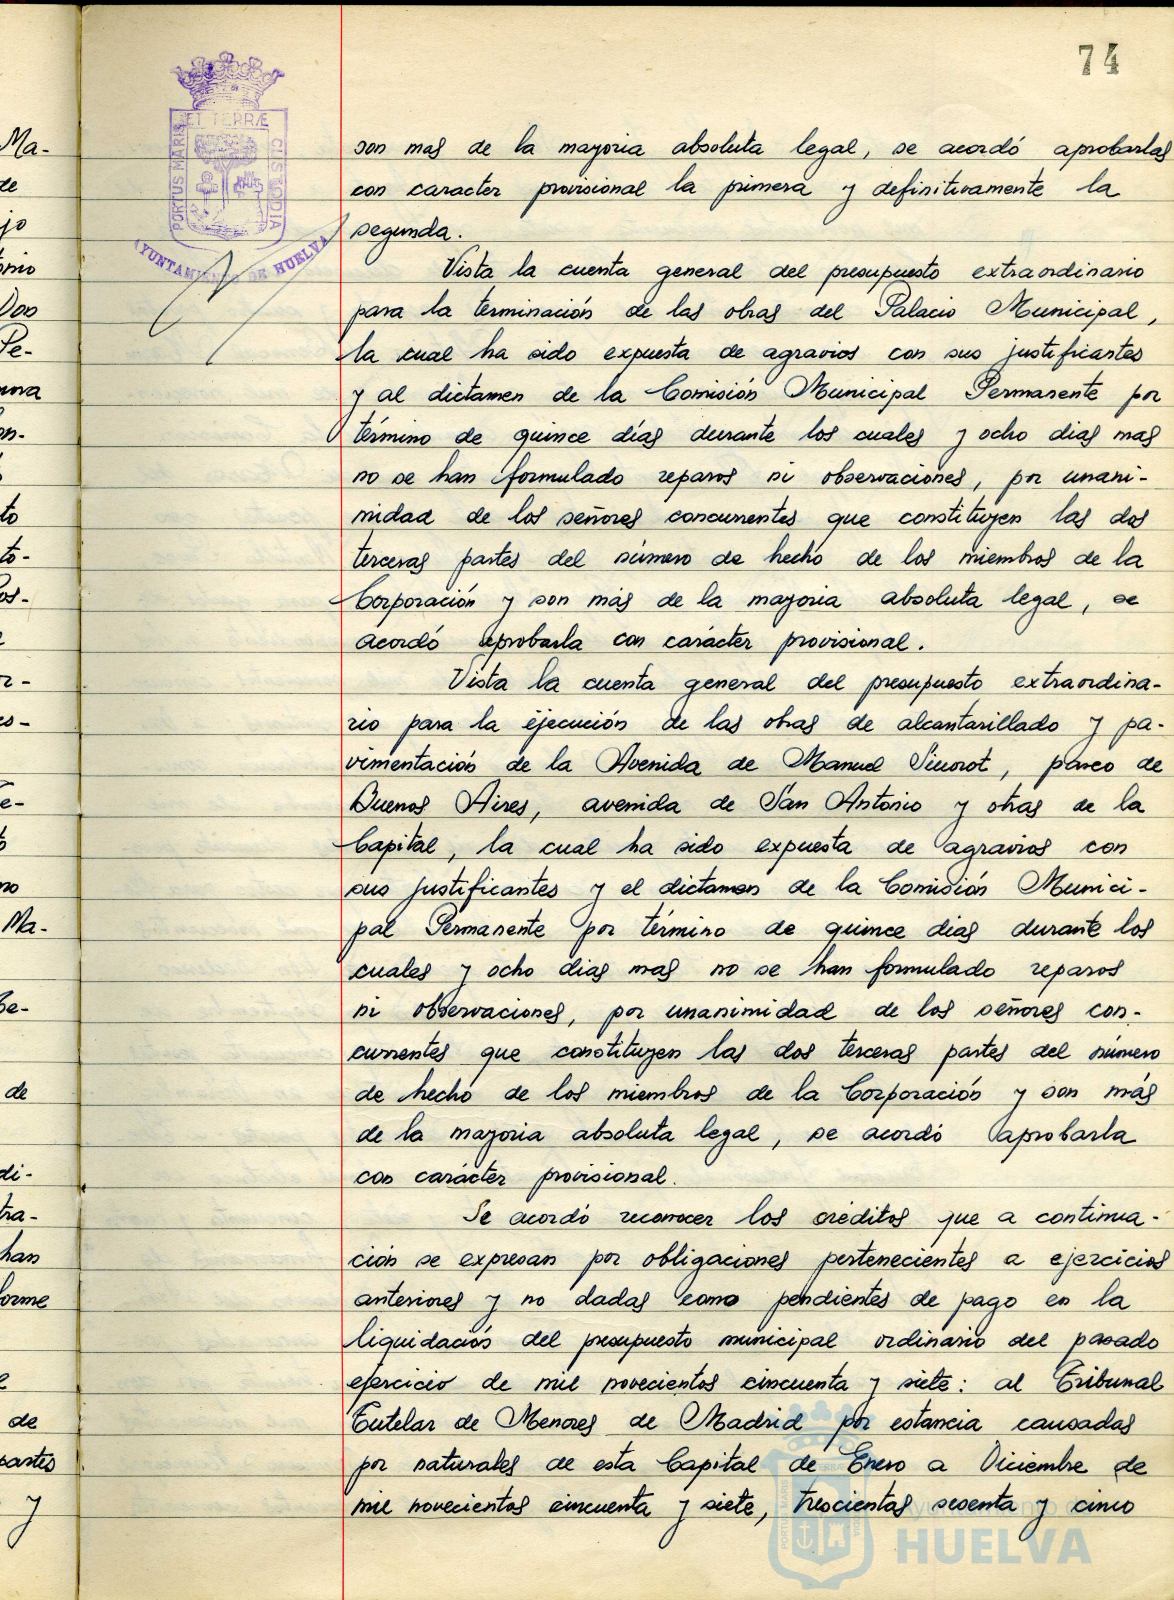 74
PORTUS MARIS ET TERRÆ CUSTODIA
AYUNTAMIENTO DE HUELVA
son mas de la mayoria absoluta legal, se acordó aprobarlas
con caracter provisional la primera y definitivamente la
segunda.
Vista la cuenta general del presupuesto extraordinario
para la terminación de las obras del Palacio Municipal,
la cual ha sido expuesta de agravios con sus justificantes
y al dictamen de la Comisión Municipal Permanente por
término de quince días durante los cuales y ocho dias mas
no se han formulado reparos ni observaciones, por unani-
midad de los señores concurrentes que constituyen las dos
terceras partes del número de hecho de los miembros de la
Corporación y son más de la mayoria absoluta legal, se
acordó aprobarla con carácter provisional.
Vista la cuenta general del presupuesto extraordina-
rio para la ejecución de las obras de alcantarillado y pa-
vimentación de la Avenida de Manuel Siurot, paseo de
Buenos Aires, avenida de San Antonio y otras de la
Capital, la cual ha sido expuesta de agravios con
sus justificantes y el dictamen de la Comisión Munici-
pal Permanente por término de quince dias durante los
cuales y ocho dias mas no se han formulado reparos
ni observaciones, por unanimidad de los señores con-
currentes que constituyen las dos terceras partes del número
de hecho de los miembros de la Corporación y son más
de la mayoria absoluta legal, se acordó aprobarla
con carácter provisional.
Se acordó reconocer los créditos que a continua-
ción se expresan por obligaciones pertenecientes a ejercicios
anteriores y no dadas como pendientes de pago en la
liquidación del presupuesto municipal ordinario del pasado
ejercicio de mil novecientos cincuenta y siete: al Tribunal
Tutelar de Menores de Madrid por estancia causadas
por naturales de esta Capital de Enero a Diciembre de
mil novecientos cincuenta y siete, trescientas sesenta y cinco
Ayuntamiento
HUELVA
Ma-
de
Ma-
de
han
de
y